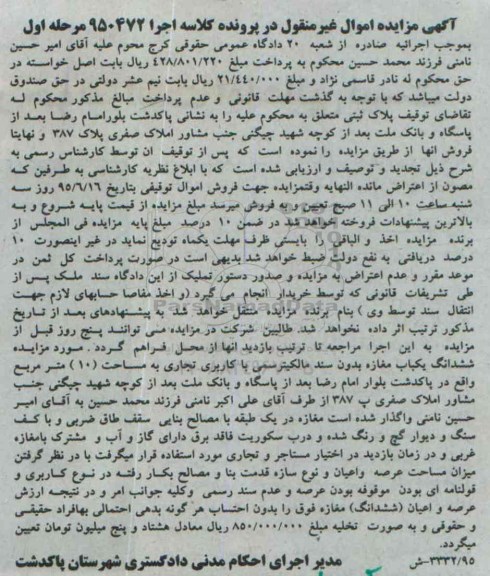 آگهی مزایده اموال غیرمنقول در پرونده کلاسه اجرا ۹۵۰۴۷۲ مرحله اول
بموجب اجرائیه صادره از شعبه ۲۰ دادگاه عمومی حقوقی کرج محوم علیه آقای امیر حسین
نامنی فرزند محمد حسین محکوم به پرداخت مبلغ ۴۲۸/۸۰۱/۲۲۰ ریال بابت اصل خواسته در
حق محکوم له نادر قاسمی نژاد و مبلغ ۲۱/۴۴۰/۰۰۰ ریال بابت نیم عشر دولتی در حق صندوق
دولت میباشد که با توجه به گذشت مهلت قانونی و عدم پرداخت مبالغ مذکور محکوم له
تقاضای توقیف پلاک ثبتی متعلق به محکوم علیه را به نشانی پاکدشت بلورامام رضا بعد از
پاسگاه و بانک ملت بعد از کوچه شهید چیگنی جنب مشاور املاک صفری پلاک ۳۸۷ و نهایتا
فروش انها از طریق مزایده را نموده است که پس از توقیف ان توسط کارشناس رسمی به
شرح ذیل تجدید و توصیف و ارزیابی شده است که با ابلاغ نظریه کارشناسی به طرفین که
مصون از اعتراض مانده النهایه وقتمزایده جهت فروش اموال توقیفی بتاریخ ۹۵/۶/۱۶ روز سه
شنبه ساعت ۱۰ الی ۱۱ صبح تعیین و به فروش میرسد مبلغ مزایده از قیمت پایه شروع و به
بالاترین پیشنهادات فروخته خواهد شد در ضمن ۱۰ درصد مبلغ پایه مزایده فی المجلس از
برنده مزایده اخذ و الباقی را بایستی ظرف مهلت یکماه تودیع نماید در غیر اینصورت ۱۰
درصد دریافتی به نفع دولت ضبط خواهد شد بدیهی است در صورت پرداخت کل ثمن در
موعد مقرر و عدم اعتراض به مزایده و صدور دستور تملیک از این دادگاه سند ملک پس از
طی تشریفات قانونی که توسط خریدار انجام می گیرد (و اخذ مفاصا حسابهای لازم جهت
انتقال سند توسط وی) بنام برنده مزایده منتقل خواهد شد به پیشنهادهای بعد از تاریخ
مذکور ترتیب اثر داده نخواهد شد. طالبین شرکت در مزایده می توانند پنج روز قبل از
مزایده به این اجرا مراجعه تا ترتیب بازدید انها از محل فراهم گردد. مورد مزایده
ششدانگ یکباب مغازه بدون سند مالکیترسمی با کاربری تجاری به مساحت (۱۰) متر مربع
واقع در پاکدشت بلوار امام رضا بعد از پاسگاه و بانک ملت بعد از کوچه شهید چیگنی جنب
مشاور املاک صفری پ ۳۸۷ از طرف آقای علی اکبر نامنی فرزند محمد حسین به آقای امیر
حسین نامنی واگذار شده است مغازه در یک طبقه با مصالح بنایی سقف طاق ضربی و با کف
سنگ و دیوار گچ و رنگ شده و درب سکوریت فاقد برق دارای گاز و آب و مشترک بامغازه
غربی و در زمان بازدید در اختیار مستاجر و تجاری مورد استفاده قرار میگرفت با در نظر گرفتن
میزان مساحت عرصه واعیان و نوع سازه قدمت بنا و مصالح بکار رفته در نوع کاربری و
قولنامه ای بودن موقوفه بودن عرصه و عدم سند رسمی وکلیه جوانب امر و در نتیجه ارزش
عرصه و اعیان (ششدانگ) مغازه فوق را بدون احتساب هر گونه بدهی احتمالی بهافراد حقیقی
و حقوقی و به صورت تخلیه مبلغ ۸۵۰/۰۰۰/۰۰۰ ریال معادل هشتاد و پنج میلیون تومان تعیین
میگردد.
۳۳۳۲/۹۵-ش مدیر اجرای احکام مدنی دادگستری شهرستان پاکدشت